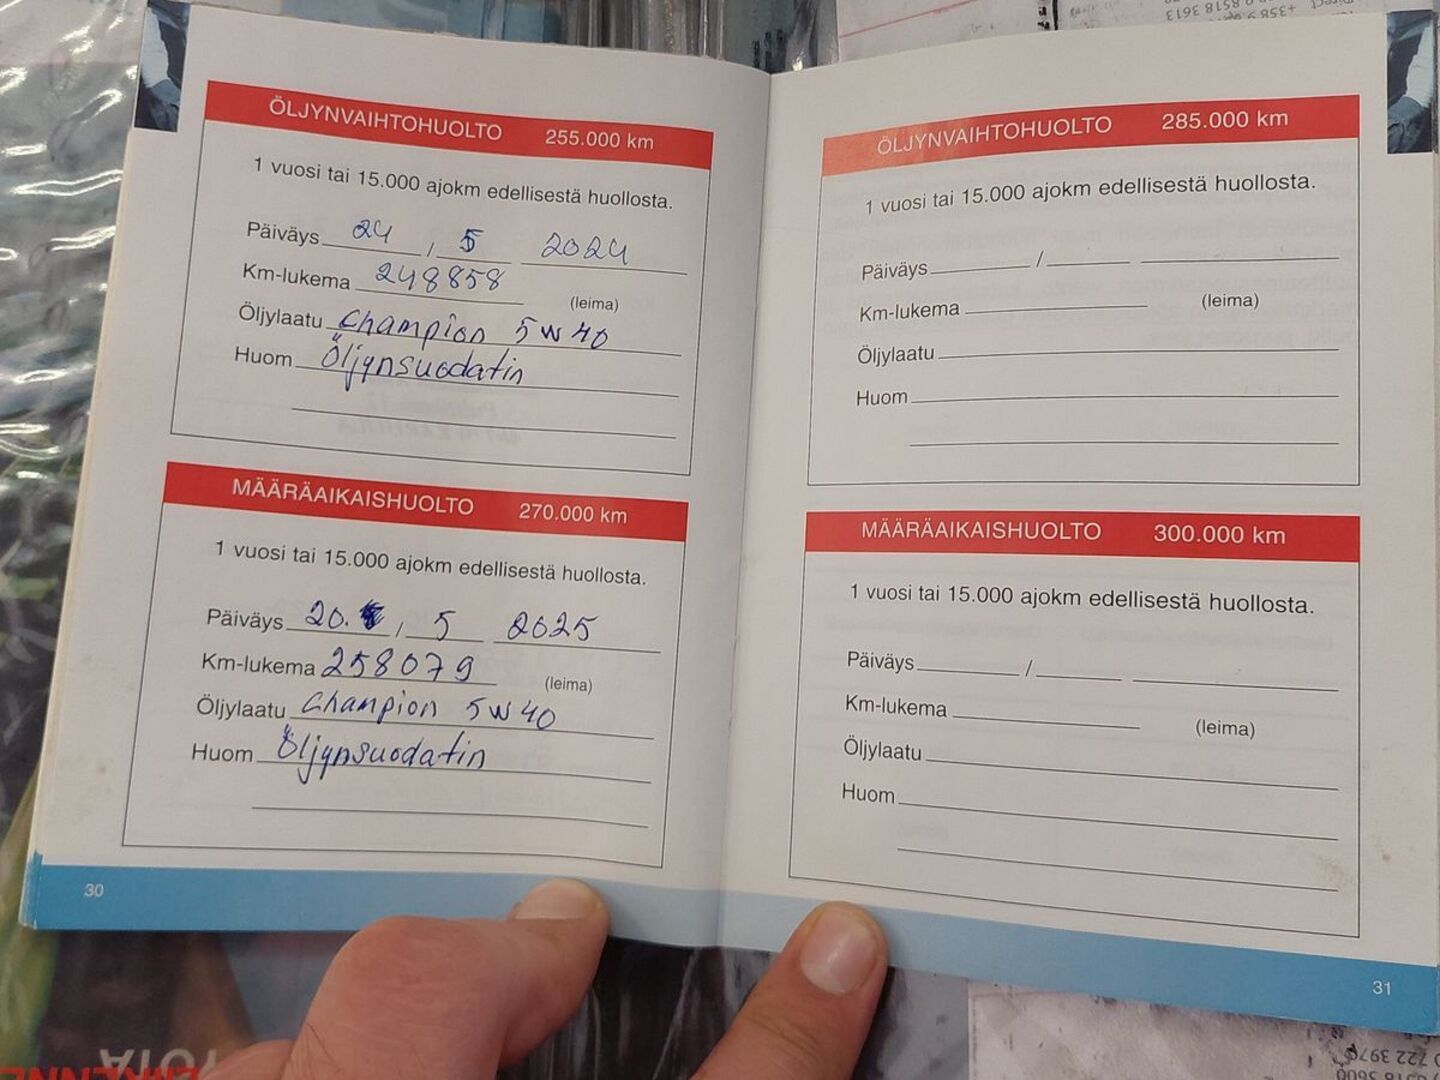 ÖLJYNVAIHTOHUOLTO 255.000 km
1 vuosi tai 15.000 ajokm edellisestä huollosta.
Päiväys 24 / 5 2024
Km-lukema 248858 (leima)
Öljylaatu Champion 5W40
Huom Öljynsuodatin
MÄÄRÄAIKAISHUOLTO 270.000 km
1 vuosi tai 15.000 ajokm edellisestä huollosta.
Päiväys 20. / 5 2025
Km-lukema 258079 (leima)
Öljylaatu Champion 5W40
Huom Öljynsuodatin
30
ÖLJYNVAIHTOHUOLTO 285.000 km
1 vuosi tai 15.000 ajokm edellisestä huollosta.
Päiväys /
Km-lukema (leima)
Öljylaatu
Huom
MÄÄRÄAIKAISHUOLTO 300.000 km
1 vuosi tai 15.000 ajokm edellisestä huollosta.
Päiväys /
Km-lukema (leima)
Öljylaatu
Huom
31